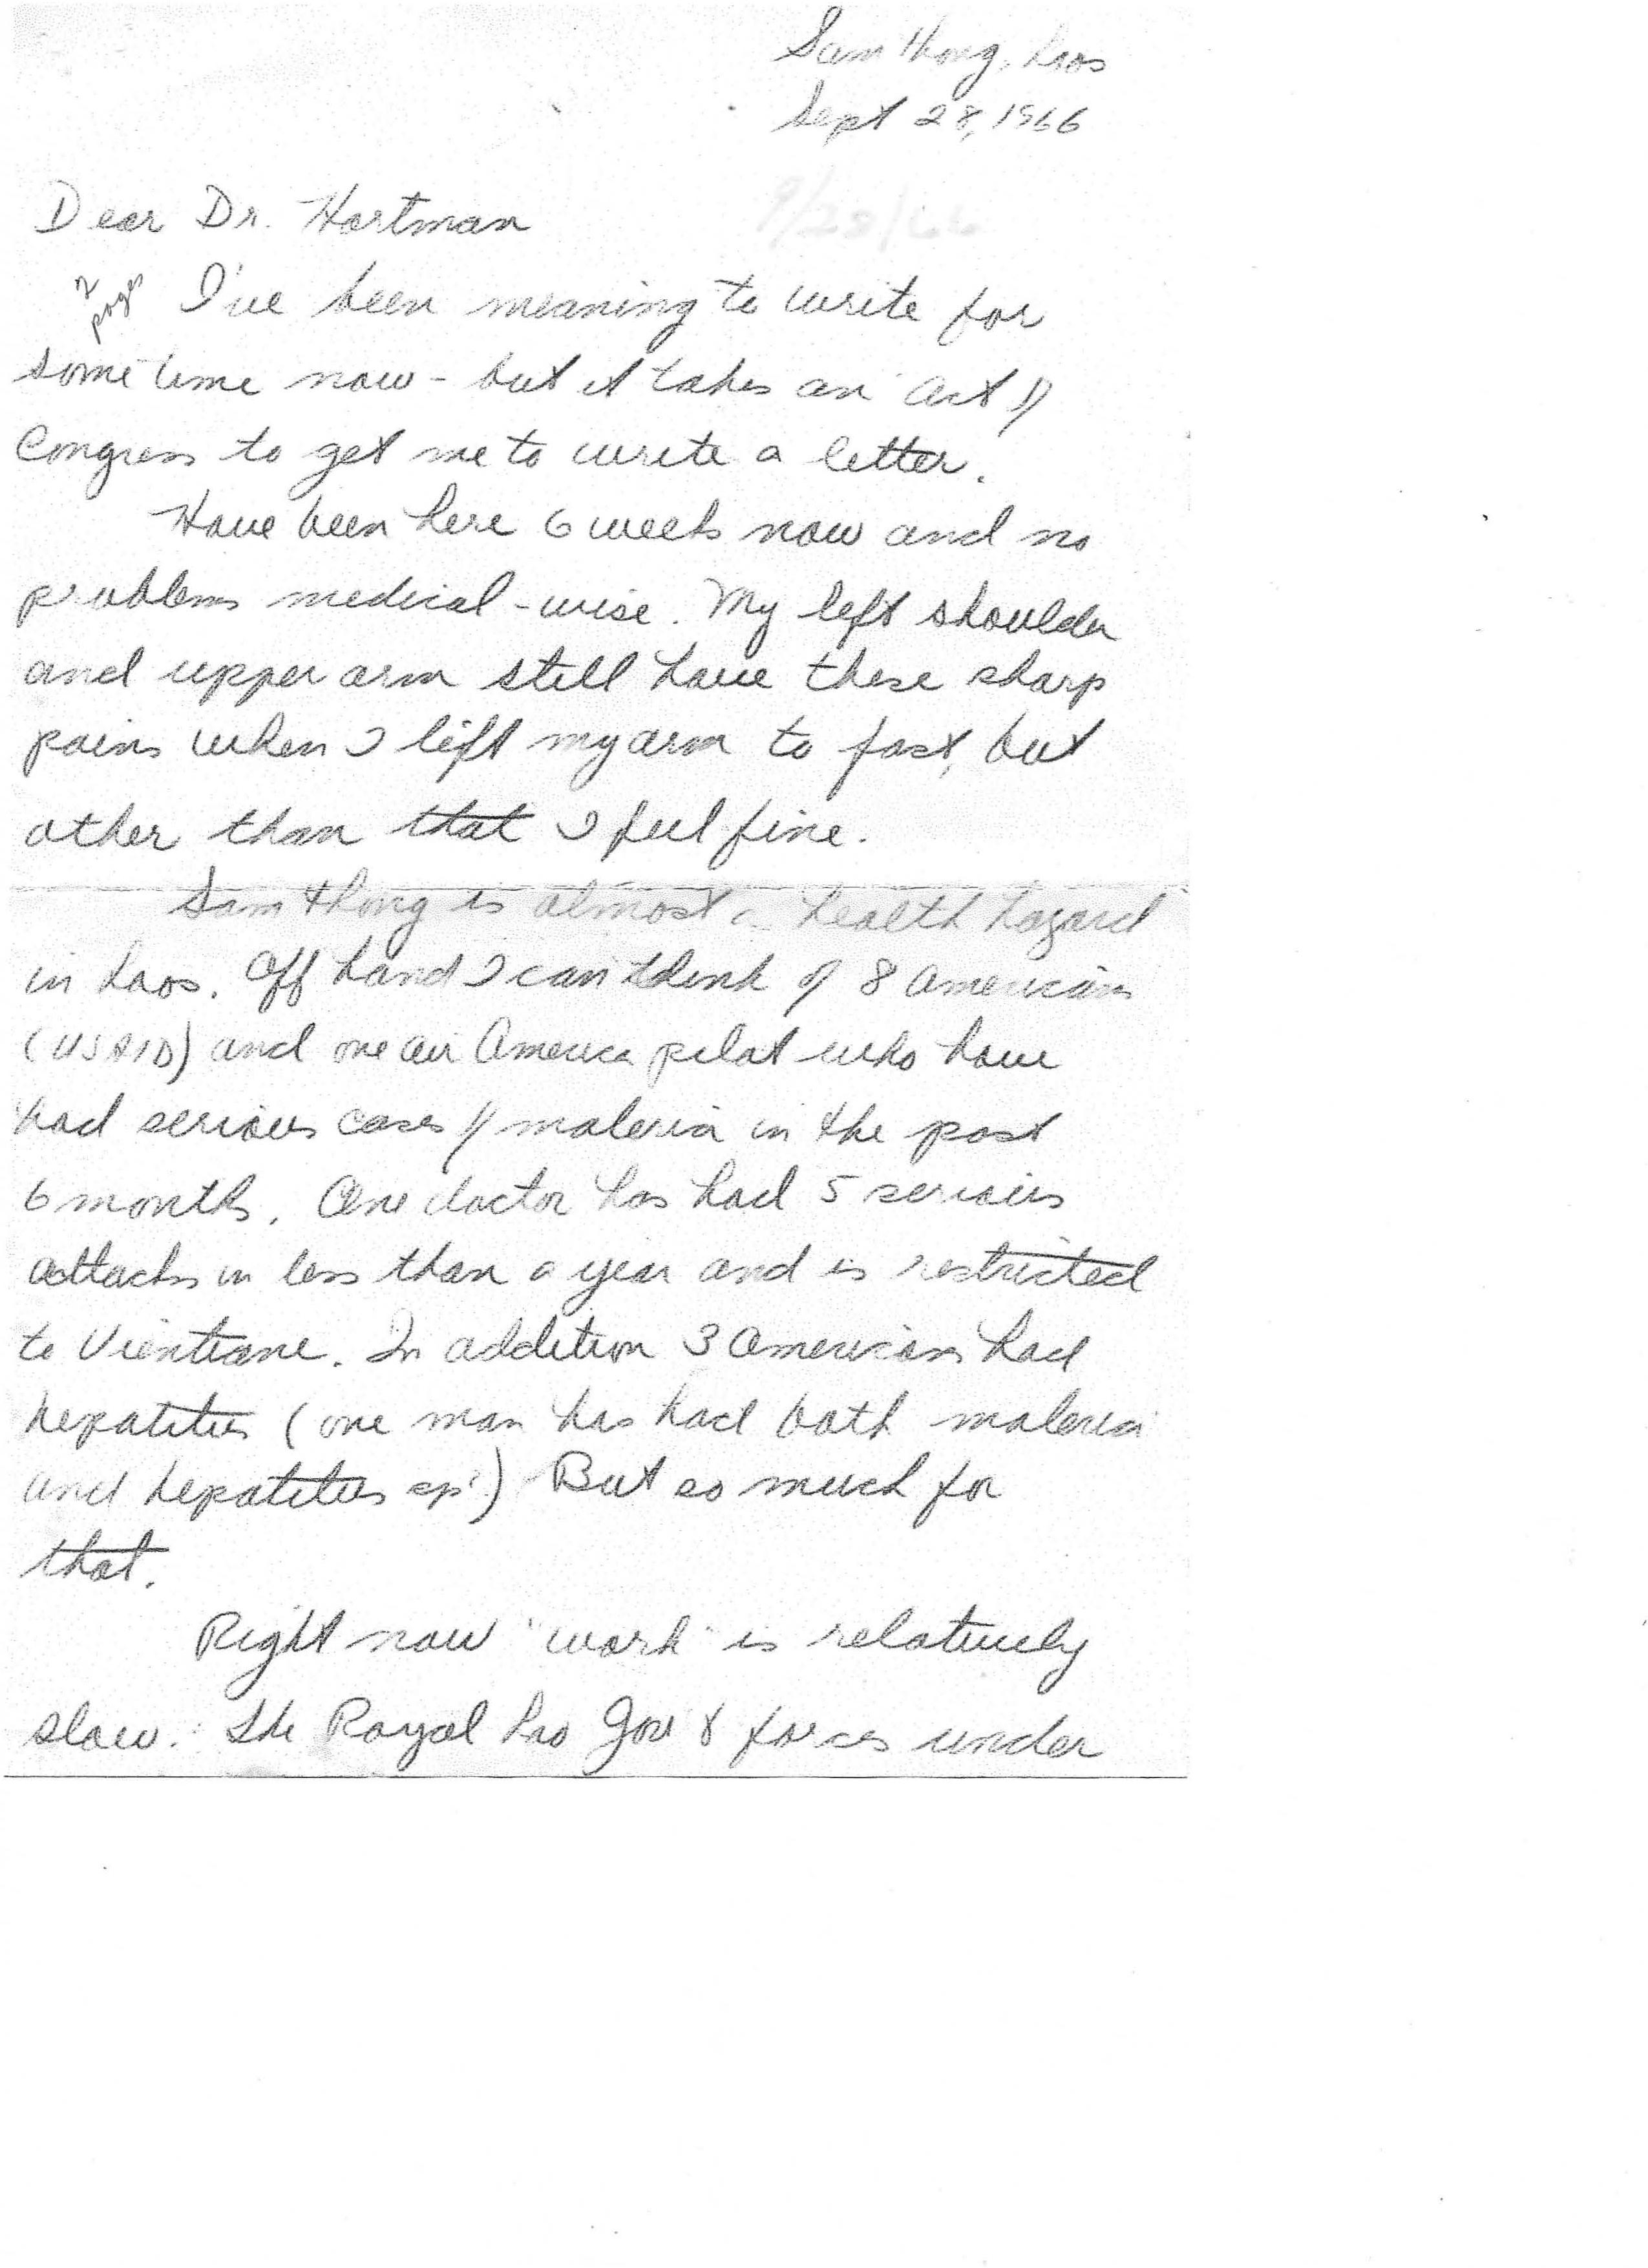 Sam Thong, Laos
Sept 28, 1966
9/28/66
Dear Dr. Hartman
2 pages
I've been meaning to write for
some time now - but it takes an act of
Congress to get me to write a letter.
Have been here 6 weeks now and no
problems medical-wise. My left shoulder
and upper arm still have these sharp
pains when I lift my arm to fast, but
other than that I feel fine.
Sam Thong is almost a health hazard
in Laos. Off hand I can think of 8 Americans
(USAID) and one Air America pilot who have
had serious cases of maleria in the past
6 months. One doctor has had 5 serious
attacks in less than a year and is restricted
to Vientiane. In addition 3 Americans had
hepatitus (one man has had both maleria
and hepatitus sp?) But so much for
that.
Right now "work" is relatively
slow. The Royal Lao Gov't forces under